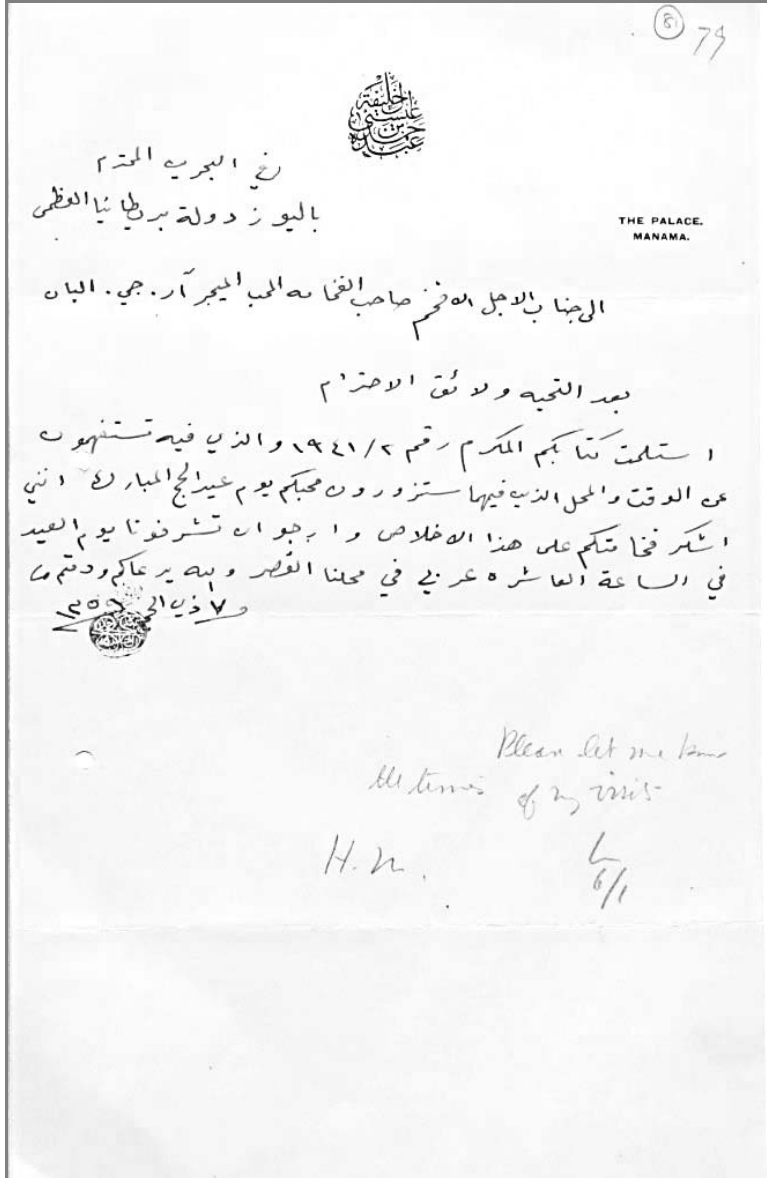 81
79
عبده
حمد بن
عيسى
الخليفة
THE PALACE.
MANAMA.
في البحرين المحترم
باليوز دولة بريطانيا العظمى
الى جناب الاجل الافخم صاحب الفخامه المحب الميجر آر. جي. البان
بعد التحيه ولائق الاحترام
استلمت كتابكم المكرم رقم ١٩٤١/٢ والذي فيه تستفهمون
عن الوقت والمحل الذين فيهما ستزورون محبكم يوم عيد الحج المبارك انني
اشكر فخامتكم على هذا الاخلاص وارجو ان تشرفونا يوم العيد
في الساعة العاشره عربي في محلنا القصر والله يرعاكم ودمتم
٧ ذي الحج ١٣٥٩
Please let me know
the times of my visit
H.M.
6/1